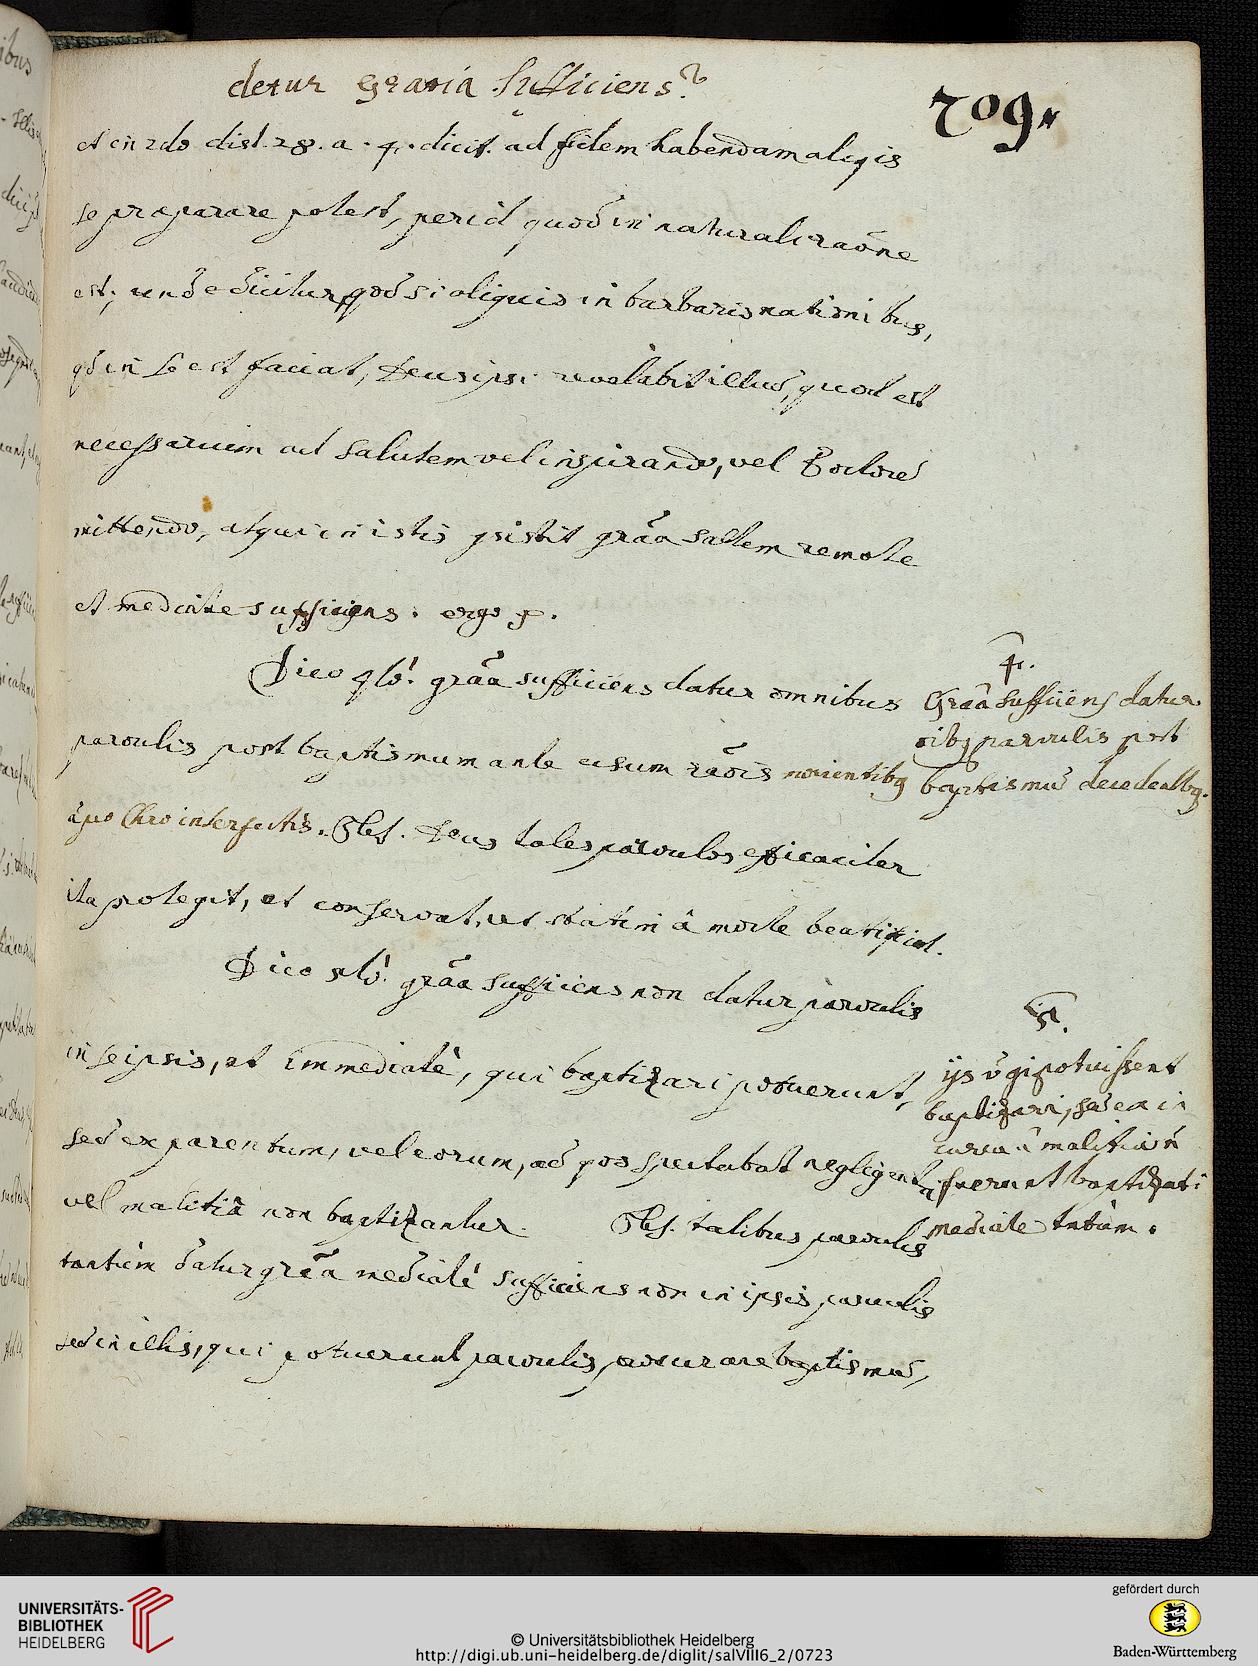 detur Gratia Sufficiens?
709
et in 2do dist. 28. a. 4. dicit. ad fidem habendam aliqis
se præparare potest, per id quod in naturali raōne
est; unde dicitur, qod si aliquis in barbaris nationibus,
qd in se est faciat, Deus ipsi revelabit illud, quod est
necessarium ad salutem vel inspirando, vel Doctorē
mittendo, atqui in istis gratiā saltem remote
et mediate sufficiens. ergo p.
Dico 4tò. grāa sufficiens datur omnibus
parvulis post baptismum ante usum rāōis morientibq
à pro Chro interfectis. Pbt. Deus tales parvulos efficaciter
ita protegit, et conservat, ut statim à morte beatificet.
Dico 5tò. grāa sufficiens non datur parvulis
in se ipsis, et immediatè, qui baptizari potuerunt,
sed ex parentum, vel eorum, ad quos spectabat negligentia
vel malitiâ non baptizantur. Pbt. talibus parvulis
tantùm datur grāa mediatè sufficiens non in ipsis parvulis
sed in illis, qui potuerunt parvulis procurare baptismū,
4.
Grāa sufficiens datur
oībq parvulis post
baptismū decedentbq.
5.
ijs v̄ qi potuissent
baptizari, sed ex in
curia à malitia n̄
fuerunt baptizati
mediate tntùm.
UNIVERSITÄTS-
BIBLIOTHEK
HEIDELBERG
© Universitätsbibliothek Heidelberg
http://digi.ub.uni-heidelberg.de/diglit/salVIII6_2/0723
gefördert durch
Baden-Württemberg